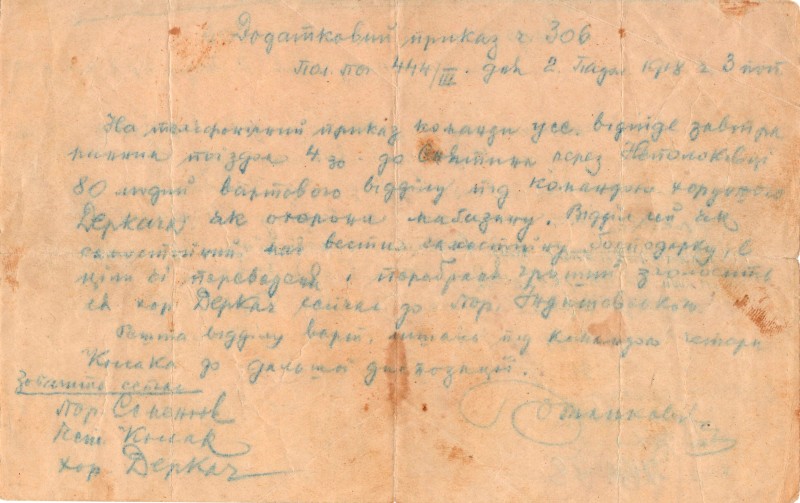 Додатковий приказ ч 306
444/III. дня 2. Пад. 1918 ч 3 поп
На телефонічний приказ команди усс. відійде завтра
ранним поїздом 4.30 до Снятина через Неполоківці
80 людий вартового відділу під командою хорунжого
Деркача як охорона магазину. Відділ сей як
самостійний має вести самостійну господарку, в
ціли переведення і перебрання грошей зголосить
ся хор. Деркач сейчас до пор.
Решта відділу варт. лишає під командою четаря
Кулака до дальшої диспозиції.
пор. Семенюк
чет. Кулак
хор. Деркач